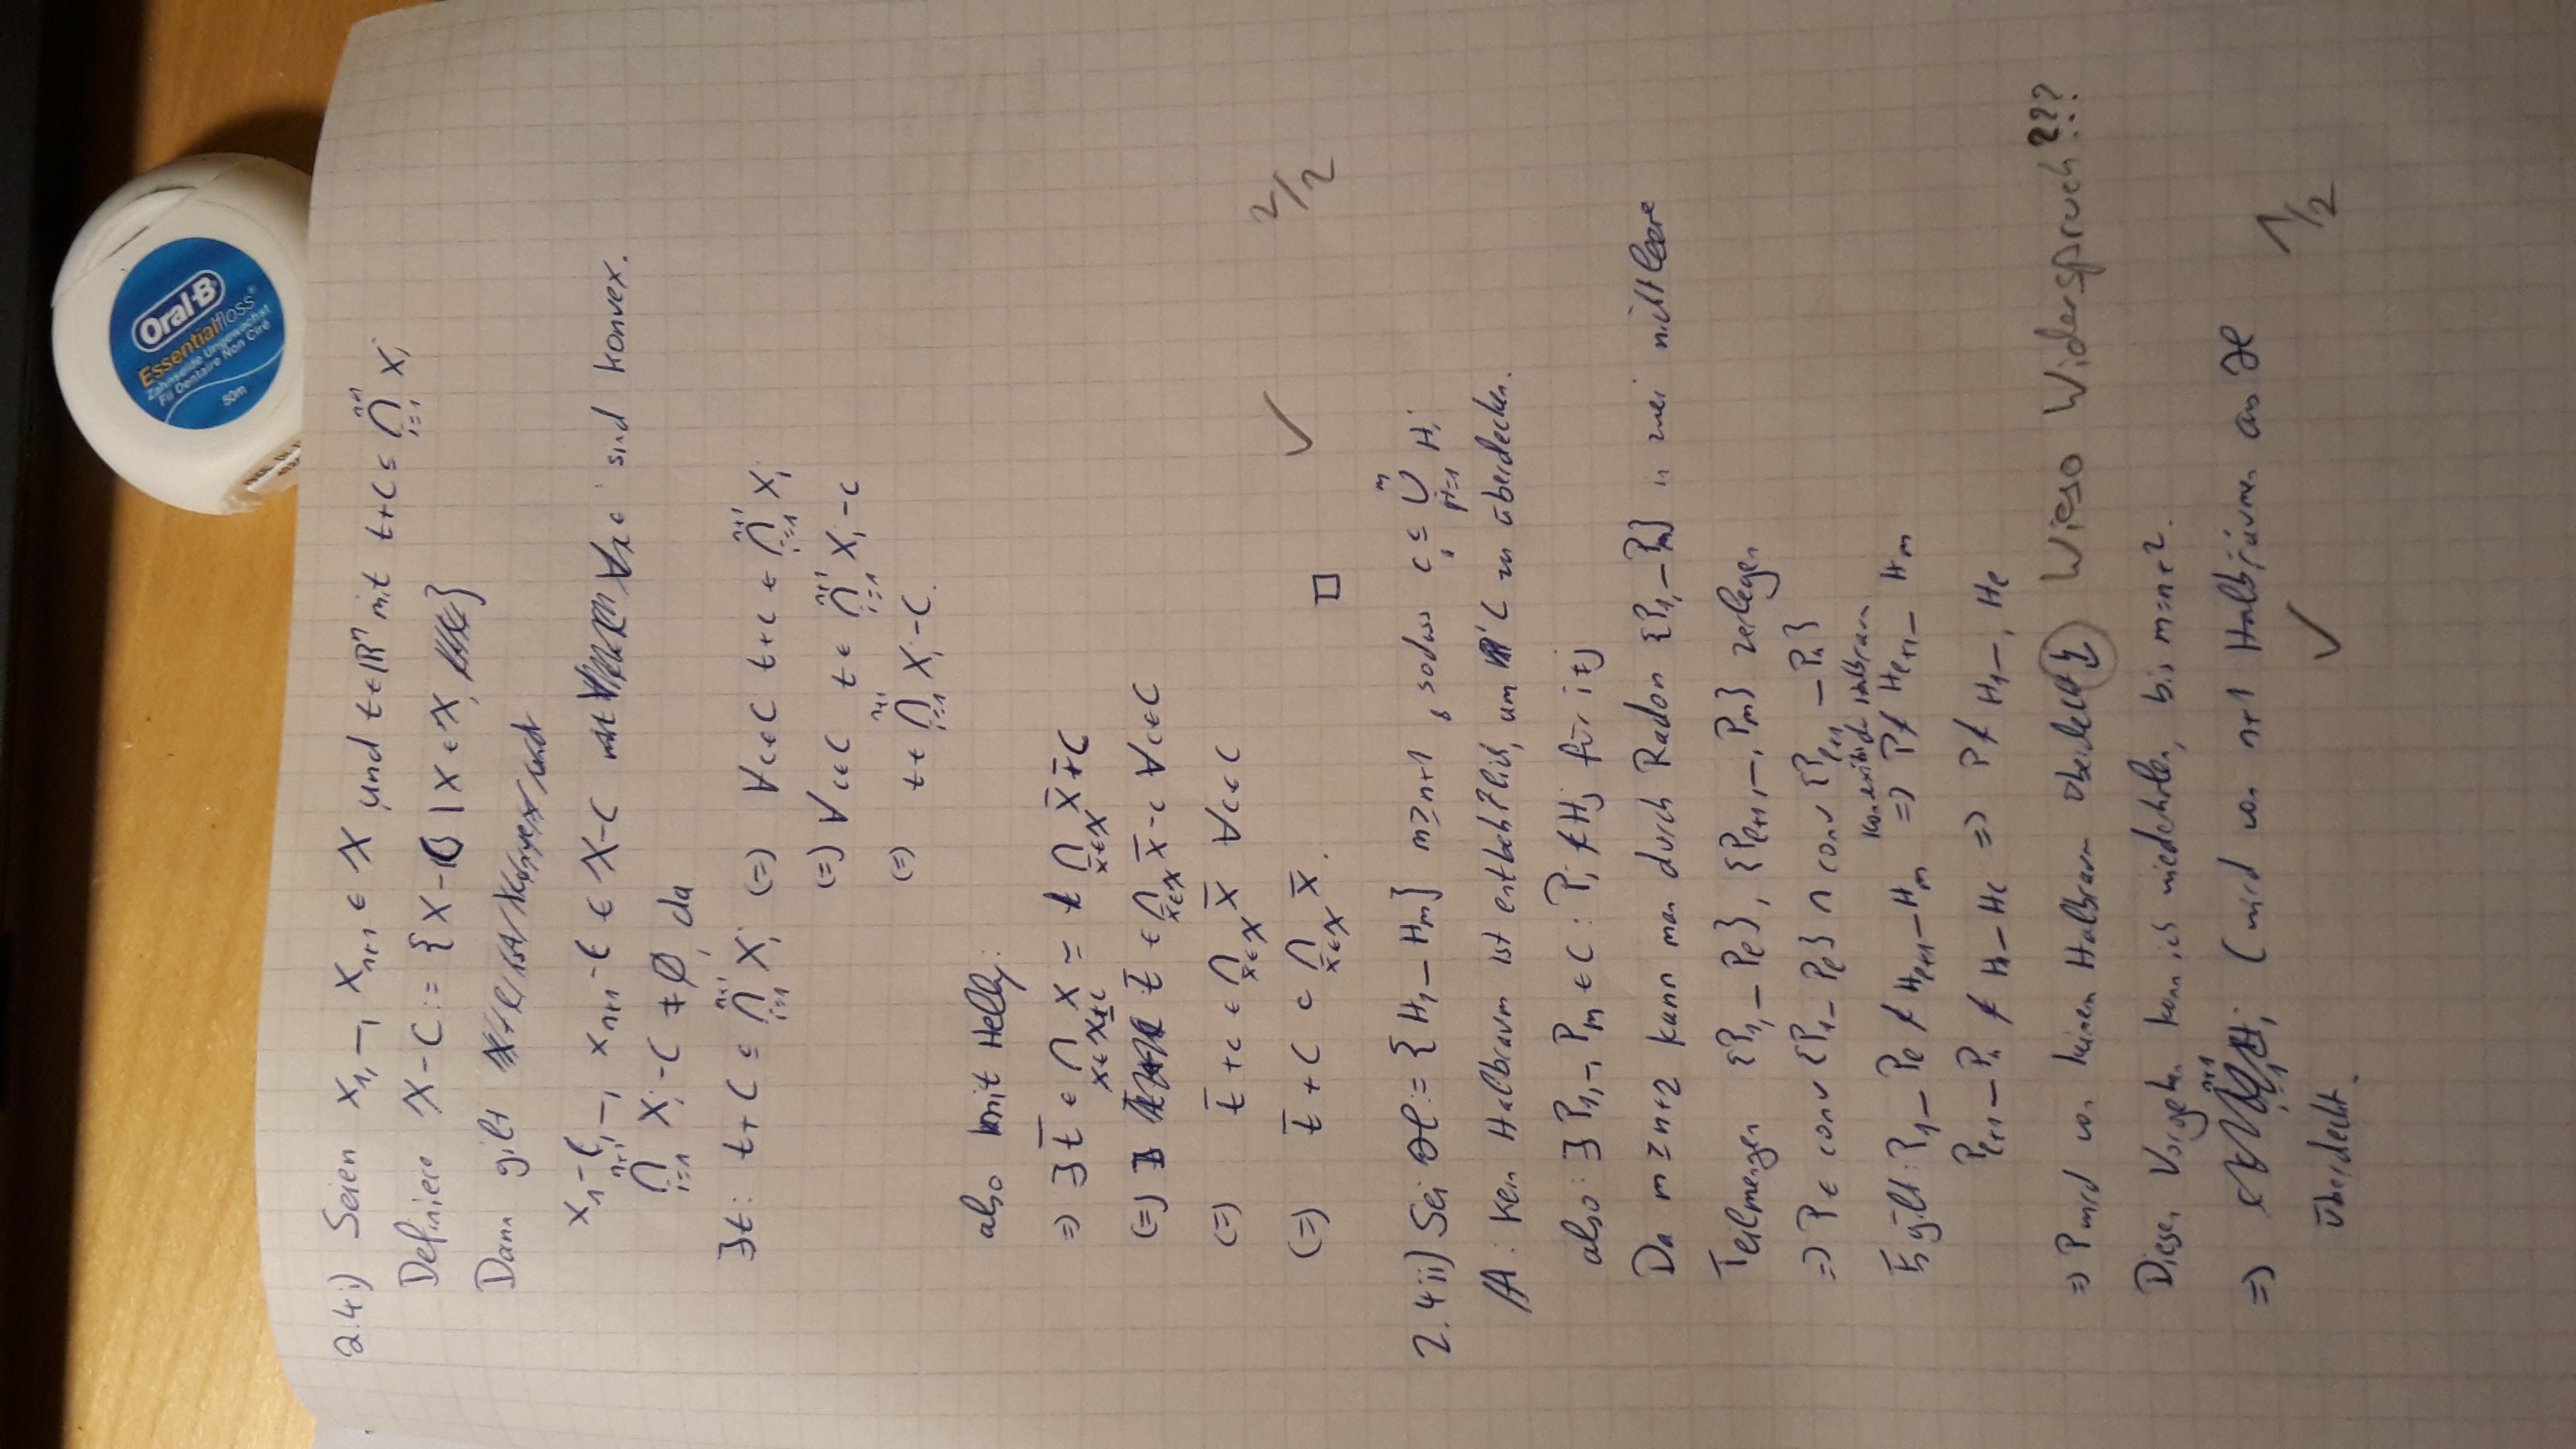 Oral-B
Essentialfloss®
Zahnseide Ungewachst
Fil Dentaire Non Ciré
50m
2.4i) Seien X₁, –, Xₙ₊₁ ∈ X und t∈ℝⁿ mit t+C ⊆ ⋂ᵢ₌₁ⁿ⁺¹ Xᵢ
Definiere X-C := {X-C | X ∈ X}
Dann gilt
X₁-C, –, Xₙ₊₁-C ∈ X-C sind konvex.
⋂ᵢ₌₁ⁿ⁺¹ Xᵢ-C ≠ ∅, da
∃t: t+C ⊆ ⋂ᵢ₌₁ⁿ⁺¹ Xᵢ (=) ∀c∈C t+c ∈ ⋂ᵢ₌₁ⁿ⁺¹ Xᵢ
(=) ∀c∈C t ∈ ⋂ᵢ₌₁ⁿ⁺¹ Xᵢ-c
(=) t ∈ ⋂ᵢ₌₁ⁿ⁺¹ Xᵢ-C.
also mit Helly:
⇒ ∃ t̄ ∈ ⋂ X = ⋂ X̄ - C
(=) t̄ ∈ ⋂ x̄-c ∀c∈C
(=) t̄ + c ∈ ⋂ x̄ ∀c∈C
(=) t̄ + C ⊂ ⋂ x̄. □ ✓ 2/2
2.4ii) Sei ℋ := {H₁ – Hₘ} m≥n+1, sodass C ⊆ ⋃ᵢ₌₁ᵐ Hᵢ
A: Kein Halbraum ist entbehrlich, um C zu überdecken.
also: ∃ P₁, –, Pₘ ∈ C : Pᵢ ∉ Hⱼ für i≠j
Da m ≥ n+2 kann man durch Radon {P₁, – Pₘ} in zwei nichtleere
Teilmengen {P₁, – Pₑ}, {Pₑ₊₁, –, Pₘ} zerlegen
⇒ P ∈ conv {P₁ – Pₑ} ∩ conv {Pₑ₊₁ – Pₙ}
Konvexität der Halbraum
Es gilt: P₁ – Pₑ ∉ Hₑ₊₁ – Hₘ ⇒ P ∉ Hₑ₊₁ – Hₘ
Pₑ₊₁ – Pₙ ∉ H₁ – Hₑ ⇒ P ∉ H₁ –, Hₑ
⇒ P wird von keinem Halbraum überdeckt ↯ Wieso Widerspruch???
Dieses Vorgehen kann ich wiederholen, bis m=n+2.
⇒ C wird von n+1 Halbräumen aus ℋ
überdeckt. ✓ 1/2